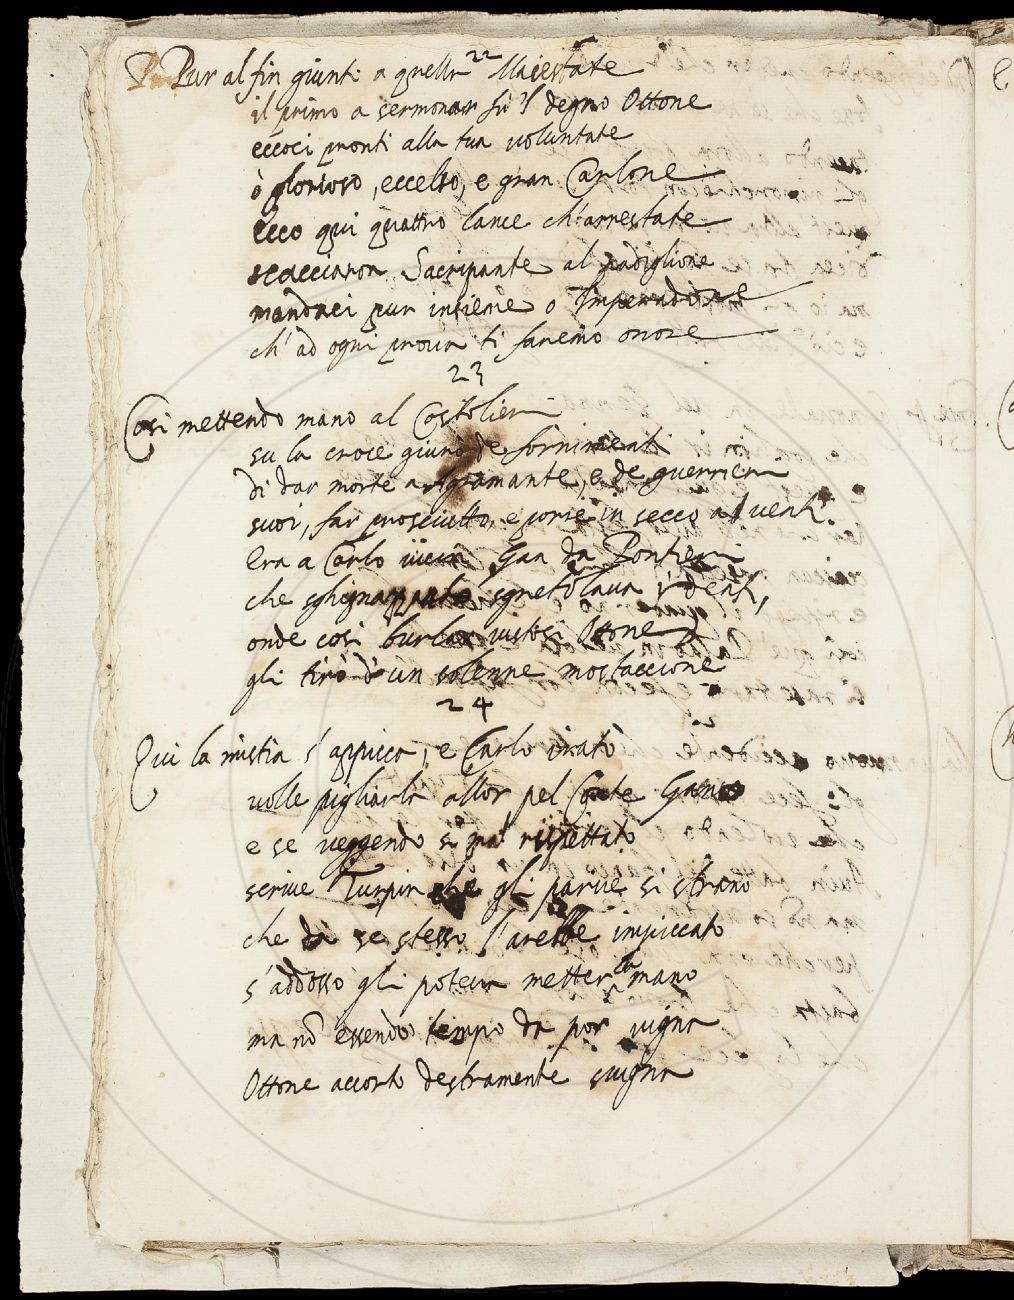 22
Pur al fin giunti a quella Maiestate
il primo a sermonar fù 'l degno Ottone
eccoci pronti alla tua voluntate
ò glorioso, eccelso, e gran Carlone
Ecco qui quattro lance ch'arrestate
scacciaron Sacripante al padiglione
mandaci pur insieme o Imperadore
ch'ad ogni prova ti faremo onore
23
Così mettendo mano al Costoliere
su la croce giurò de fornimenti
di dar morte a Agramante, e de guerrieri
suoi, far prosciutto, e porre in secco a i venti.
Era a Carlo vicin Gan da Pontieri
che sghignazzando sgretolava i denti,
onde così burlar vistosi Ottone
gli tirò d'un solenne mostaccione
24
Qui la mistia s'appicca, e Carlo irato
volle pigliarla allor pel Conte Gano
e se veggendo sì mal rispettato
scrive Turpin che gli parve si strano
che da se stesso l'arebbe impiccato
s'addosso gli poteva metter la mano
ma nō essendo tempo da por vigna
Ottone accorto destramente svigna